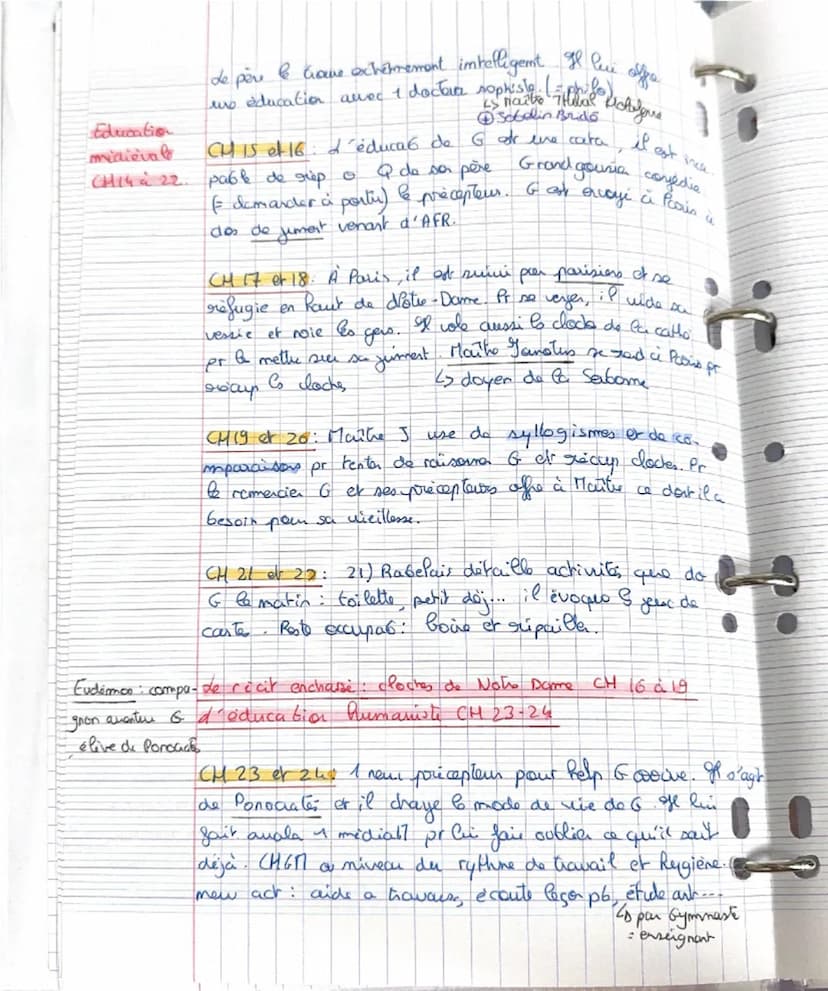 de père le trouve extrêmement intelligent. Il lui offre
une éducation avec 1 docteur sophiste (= philo)
↳ maître Thubal Holoferne
⊕ Jobelin Bridé
Education
médiévale
CH 14 à 22.
CH 15 et 16 : L'éducat° de G est une cata, il est inca
pable de rép à Q de son père Grandgousier congédie
(= demander à partir) le précepteur. G est envoyé à Paris à
dos de jument venant d'AFR.
CH 17 et 18. À Paris, il est suivi par parisiens et se
réfugie en haut de Notre-Dame. Pr se venger, il vide sa
vessie et noie les gens. Il vole aussi les cloches de la cathé
pr les mettre sur sa jument. Maître Janotus se rend à Paris pr
récup les cloches
↳ doyen de la Sorbonne
CH 19 et 20 : Maître J use de syllogismes et de co-
mparaisons pr tenter de raisonner G et récup cloches. Pr
le remercier G et ses précepteurs offre à Maître ce dont il a
besoin pour sa vieillesse.
CH 21 et 22 : 21) Rabelais détaille activités que do
G le matin : toilette, petit dej... il évoque les jeux de
carte. Reste occupat° : boire et ripailler.
Eudémon : compa-
gnon aventure G
élève de Ponocrates
de récit enchassé : cloches de Notre Dame CH 16 à 19
L'éducation humaniste CH 23-24
CH 23 et 24 : 1 nouv précepteur pour help G arrive. Il s'agit
de Ponocrates et il change le mode de vie de G. Il lui
fait avaler 1 médicat° pr lui faire oublier ce qu'il sait
déjà. CHGM a niveau du rythme de travail et hygiène.
nouv act : aide a travaux, écoute leçon pb, étude art...
↳ par Gymnaste
= enseignant